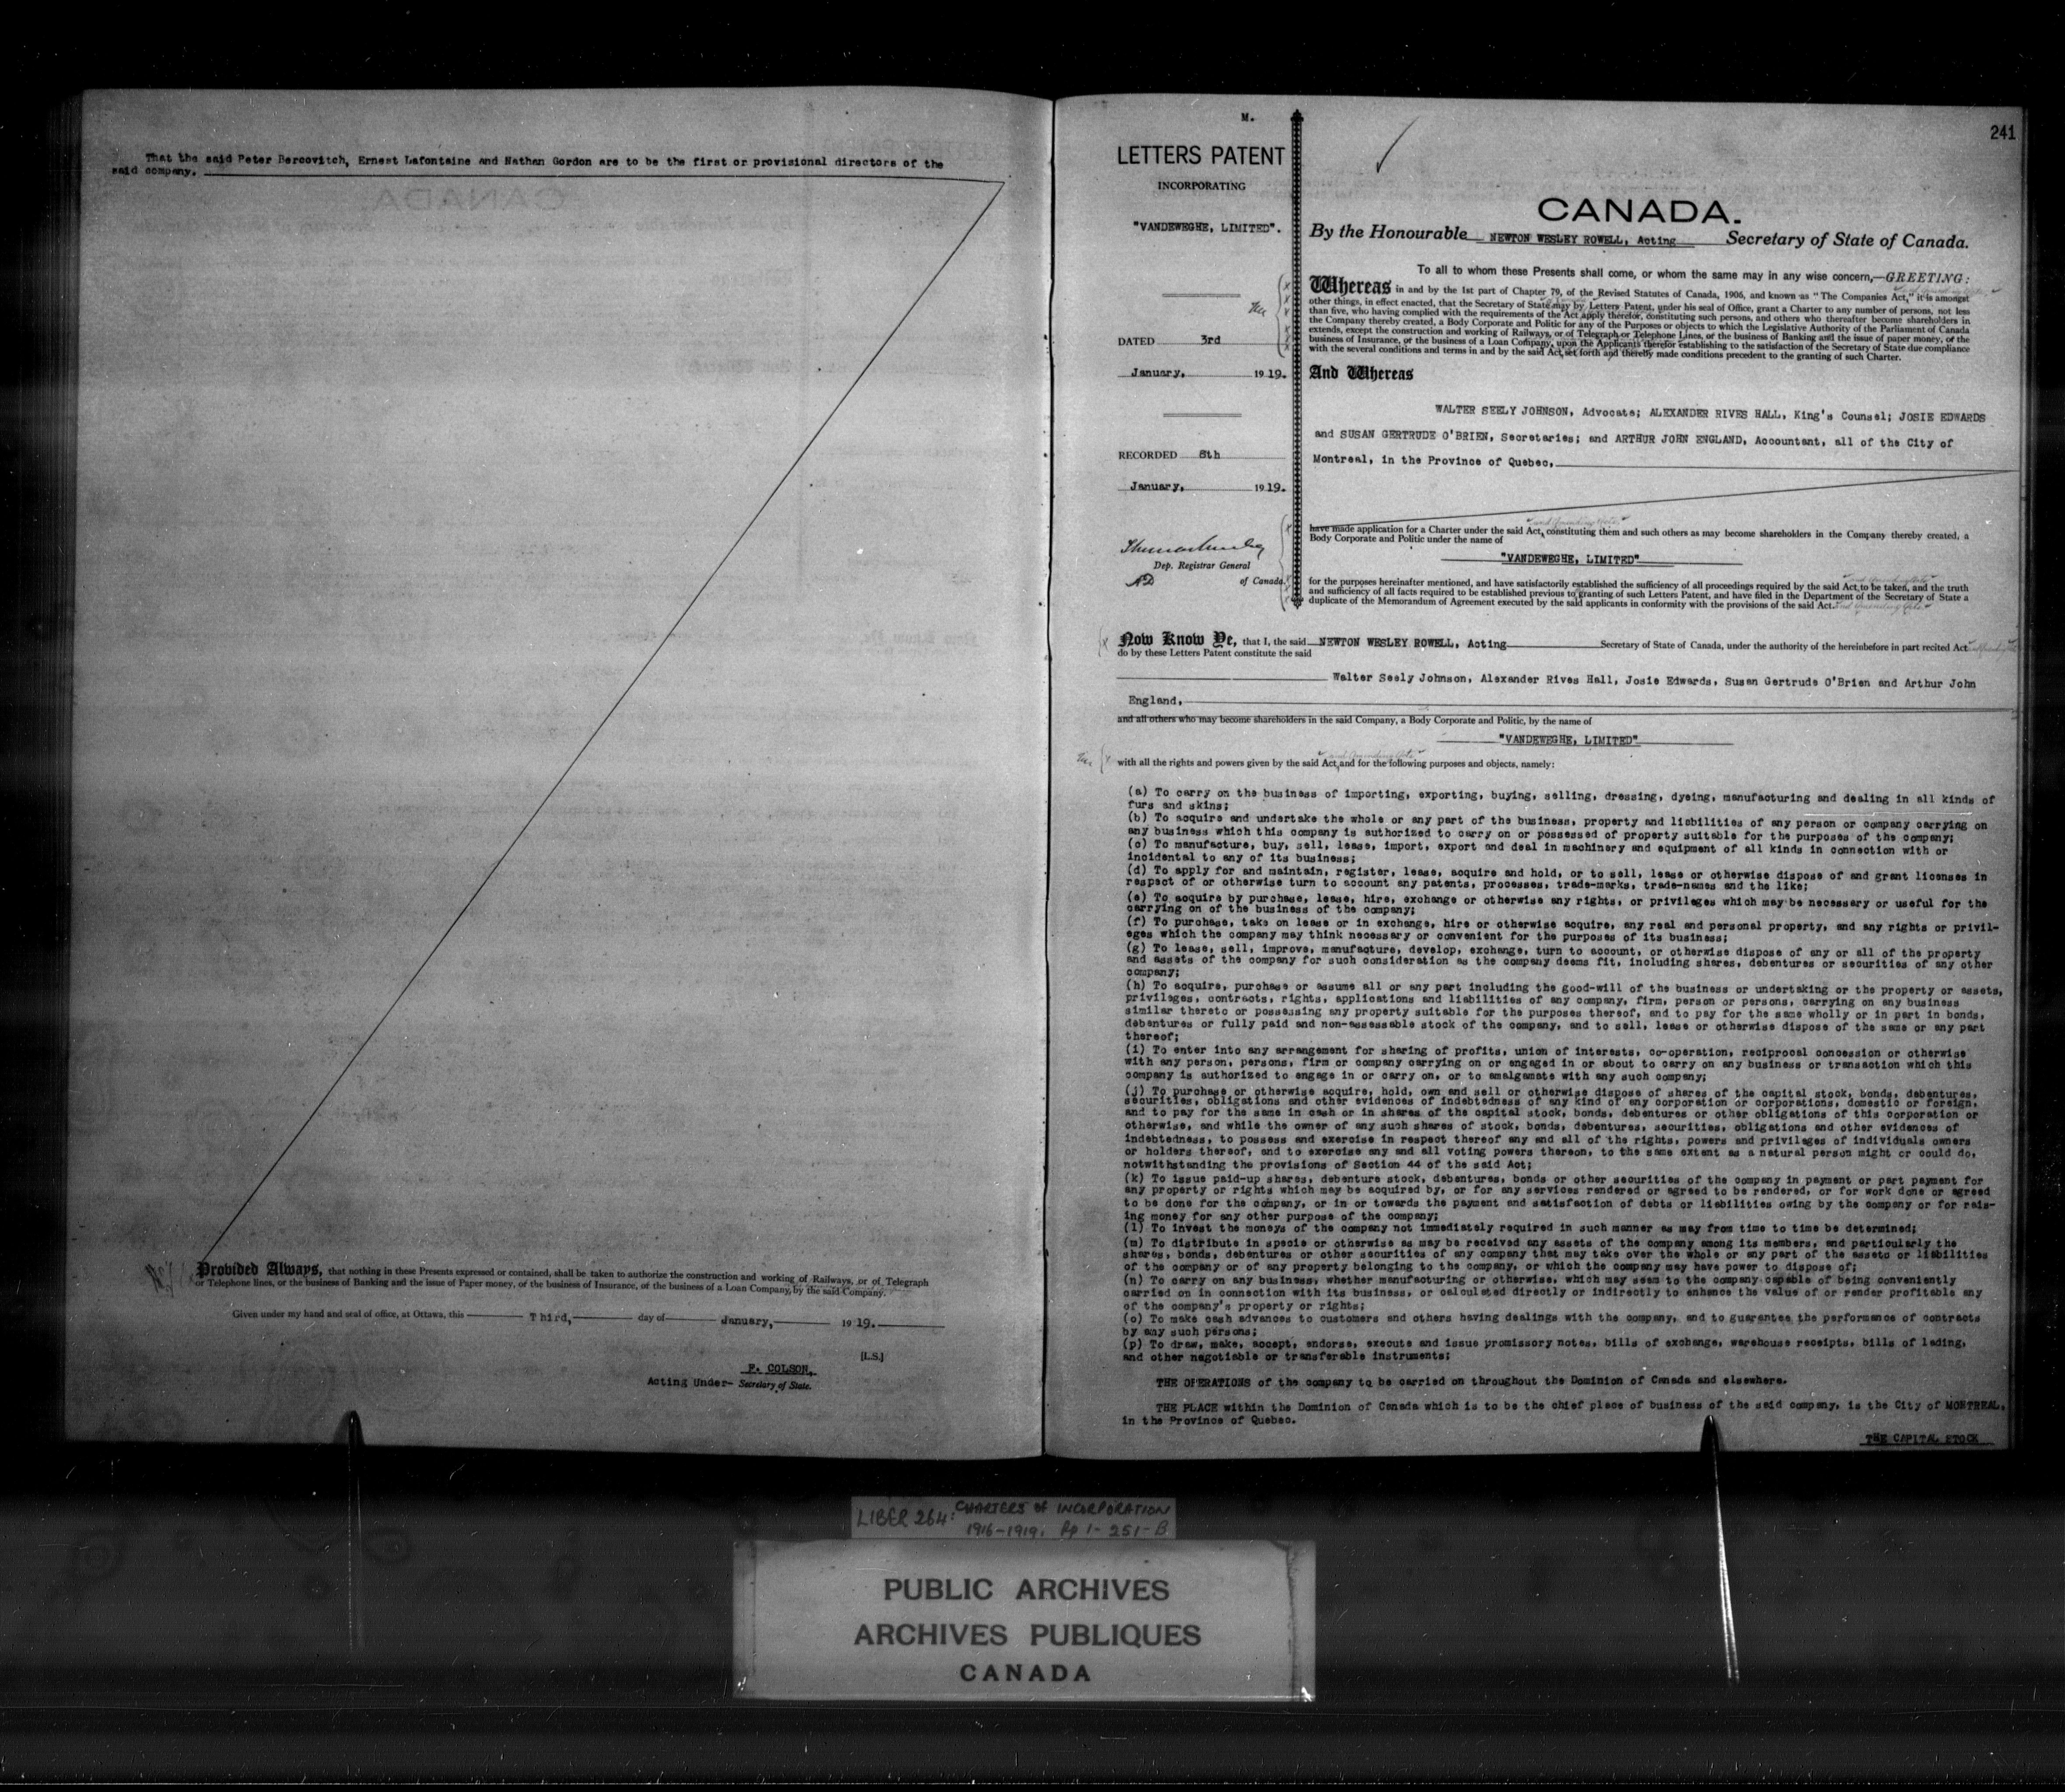 That the said Peter Bercovitch, Ernest Lafontaine and Nathan Gordon are to be the first or provisional directors of the
said company.
Provided Always, that nothing in these Presents expressed or contained, shall be taken to authorize the construction and working of Railways, or of Telegraph
or Telephone lines, or the business of Banking and the issue of Paper money, or the business of Insurance, or the business of a Loan Company, by the said Company.
Given under my hand and seal of office, at Ottawa, this Third, day of January, 1919.
[L.S.]
F. COLSON,
Acting Under- Secretary of State.
241
M.
LETTERS PATENT
INCORPORATING
"VANDEWEGHE, LIMITED".
DATED 3rd
January, 1919.
RECORDED 8th
January, 1919.
Dep. Registrar General
of Canada.
CANADA.
By the Honourable NEWTON WESLEY ROWELL, Acting Secretary of State of Canada.
To all to whom these Presents shall come, or whom the same may in any wise concern,—GREETING:
Whereas in and by the 1st part of Chapter 79, of the Revised Statutes of Canada, 1906, and known as "The Companies Act," it is amongst
other things, in effect enacted, that the Secretary of State may by Letters Patent, under his seal of Office, grant a Charter to any number of persons, not less
than five, who having complied with the requirements of the Act apply therefor, constituting such persons, and others who thereafter become shareholders in
the Company thereby created, a Body Corporate and Politic for any of the Purposes or objects to which the Legislative Authority of the Parliament of Canada
extends, except the construction and working of Railways, or of Telegraph or Telephone Lines, or the business of Banking and the issue of paper money, or the
business of Insurance, or the business of a Loan Company, upon the Applicants therefor establishing to the satisfaction of the Secretary of State due compliance
with the several conditions and terms in and by the said Act, set forth and thereby made conditions precedent to the granting of such Charter.
And Whereas
WALTER SEELY JOHNSON, Advocate; ALEXANDER RIVES HALL, King's Counsel; JOSIE EDWARDS
and SUSAN GERTRUDE O'BRIEN, Secretaries; and ARTHUR JOHN ENGLAND, Accountant, all of the City of
Montreal, in the Province of Quebec,
have made application for a Charter under the said Act, constituting them and such others as may become shareholders in the Company thereby created, a
Body Corporate and Politic under the name of
"VANDEWEGHE, LIMITED"
for the purposes hereinafter mentioned, and have satisfactorily established the sufficiency of all proceedings required by the said Act, to be taken, and the truth
and sufficiency of all facts required to be established previous to granting of such Letters Patent, and have filed in the Department of the Secretary of State a
duplicate of the Memorandum of Agreement executed by the said applicants in conformity with the provisions of the said Act. and Amending Acts
Now Know Ye, that I, the said NEWTON WESLEY ROWELL, Acting Secretary of State of Canada, under the authority of the hereinbefore in part recited Act
do by these Letters Patent constitute the said
Walter Seely Johnson, Alexander Rives Hall, Josie Edwards, Susan Gertrude O'Brien and Arthur John
England,
and all others who may become shareholders in the said Company, a Body Corporate and Politic, by the name of
"VANDEWEGHE, LIMITED"
and Amending Acts
with all the rights and powers given by the said Act, and for the following purposes and objects, namely:
(a) To carry on the business of importing, exporting, buying, selling, dressing, dyeing, manufacturing and dealing in all kinds of
furs and skins;
(b) To acquire and undertake the whole or any part of the business, property and liabilities of any person or company carrying on
any business which this company is authorized to carry on or possessed of property suitable for the purposes of the company;
(c) To manufacture, buy, sell, lease, import, export and deal in machinery and equipment of all kinds in connection with or
incidental to any of its business;
(d) To apply for and maintain, register, lease, acquire and hold, or to sell, lease or otherwise dispose of and grant licenses in
respect of or otherwise turn to account any patents, processes, trade-marks, trade-names and the like;
(e) To acquire by purchase, lease, hire, exchange or otherwise any rights, or privileges which may be necessary or useful for the
carrying on of the business of the company;
(f) To purchase, take on lease or in exchange, hire or otherwise acquire, any real and personal property, and any rights or privil-
eges which the company may think necessary or convenient for the purposes of its business;
(g) To lease, sell, improve, manufacture, develop, exchange, turn to account, or otherwise dispose of any or all of the property
and assets of the company for such consideration as the company deems fit, including shares, debentures or securities of any other
company;
(h) To acquire, purchase or assume all or any part including the good-will of the business or undertaking or the property or assets,
privileges, contracts, rights, applications and liabilities of any company, firm, person or persons, carrying on any business
similar thereto or possessing any property suitable for the purposes thereof, and to pay for the same wholly or in part in bonds,
debentures or fully paid and non-assessable stock of the company, and to sell, lease or otherwise dispose of the same or any part
thereof;
(i) To enter into any arrangement for sharing of profits, union of interests, co-operation, reciprocal concession or otherwise
with any person, persons, firm or company carrying on or engaged in or about to carry on any business or transaction which this
company is authorized to engage in or carry on, or to amalgamate with any such company;
(j) To purchase or otherwise acquire, hold, own and sell or otherwise dispose of shares of the capital stock, bonds, debentures,
securities, obligations and other evidences of indebtedness of any kind of any corporation or corporations, domestic or foreign,
and to pay for the same in cash or in shares of the capital stock, bonds, debentures or other obligations of this corporation or
otherwise, and while the owner of any such shares of stock, bonds, debentures, securities, obligations and other evidences of
indebtedness, to possess and exercise in respect thereof any and all of the rights, powers and privileges of individuals owners
or holders thereof, and to exercise any and all voting powers thereon, to the same extent as a natural person might or could do,
notwithstanding the provisions of Section 44 of the said Act;
(k) To issue paid-up shares, debenture stock, debentures, bonds or other securities of the company in payment or part payment for
any property or rights which may be acquired by, or for any services rendered or agreed to be rendered, or for work done or agreed
to be done for the company, or in or towards the payment and satisfaction of debts or liabilities owing by the company or for rais-
ing money for any other purpose of the company;
(l) To invest the moneys of the company not immediately required in such manner as may from time to time be determined;
(m) To distribute in specie or otherwise as may be received any assets of the company among its members, and particularly the
shares, bonds, debentures or other securities of any company that may take over the whole or any part of the assets or liabilities
of the company or of any property belonging to the company, or which the company may have power to dispose of;
(n) To carry on any business, whether manufacturing or otherwise, which may seem to the company capable of being conveniently
carried on in connection with its business, or calculated directly or indirectly to enhance the value of or render profitable any
of the company's property or rights;
(o) To make cash advances to customers and others having dealings with the company, and to guarantee the performance of contracts
by any such persons;
(p) To draw, make, accept, endorse, execute and issue promissory notes, bills of exchange, warehouse receipts, bills of lading,
and other negotiable or transferable instruments;
THE OPERATIONS of the company to be carried on throughout the Dominion of Canada and elsewhere.
THE PLACE within the Dominion of Canada which is to be the chief place of business of the said company, is the City of MONTREAL,
in the Province of Quebec.
THE CAPITAL STOCK
LIBER 264: CHARTERS OF INCORPORATION
1916-1919. Pp 1-251-B
PUBLIC ARCHIVES
ARCHIVES PUBLIQUES
CANADA